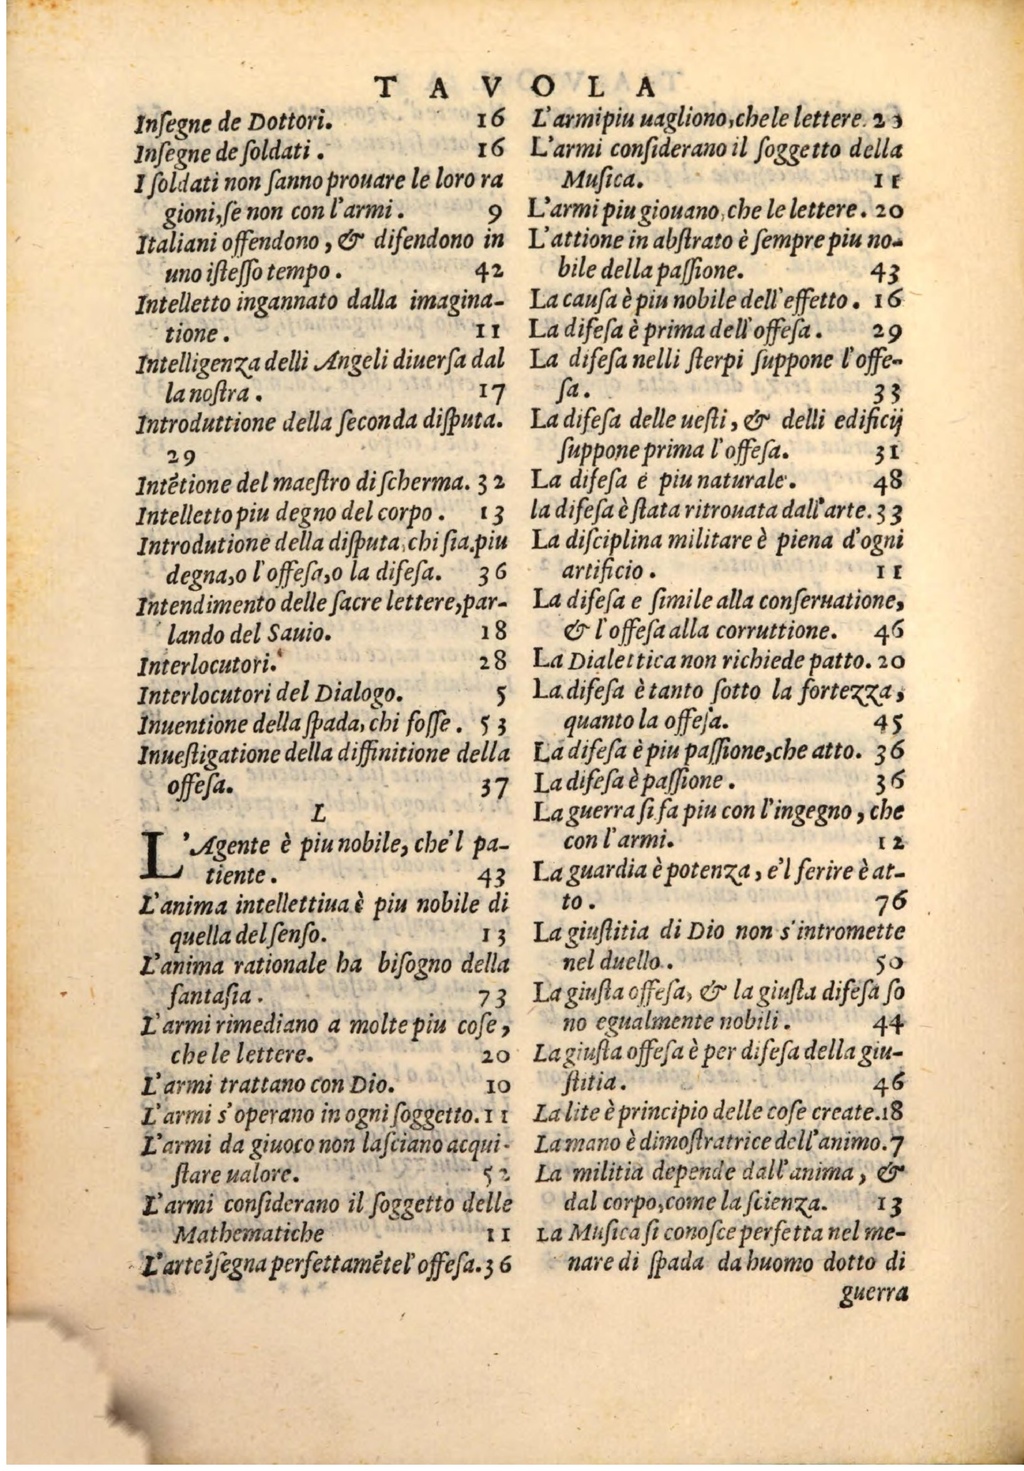 TAVOLA
Inſegne de Dottori. 16
Inſegne de ſoldati. 16
I ſoldati non ſanno prouare le loro ra
gioni, ſe non con l'armi. 9
Italiani offendono, & difendono in
uno iſteſſo tempo. 42
Intelletto ingannato dalla imagina-
tione. 11
Intelligenza delli Angeli diuerſa dal
la noſtra. 17
Introduttione della ſeconda diſputa.
29
Intētione del maeſtro di ſcherma. 32
Intelletto piu degno del corpo. 13
Introdutione della diſputa, chi ſia piu
degna, o l'offeſa, o la difeſa. 36
Intendimento delle ſacre lettere, par-
lando del Sauio. 18
Interlocutori. 28
Interlocutori del Dialogo. 5
Inuentione della ſpada, chi foſſe. 53
Inueſtigatione della diffinitione della
offeſa. 37
L
L'Agente è piu nobile, che'l pa-
tiente. 43
L'anima intellettiua è piu nobile di
quella del ſenſo. 13
L'anima rationale ha biſogno della
fantaſia. 73
L'armi rimediano a molte piu coſe,
che le lettere. 20
L'armi trattano con Dio. 10
L'armi s'operano in ogni ſoggetto. 11
L'armi da giuoco non laſciano acqui-
ſtare ualore. 52
L'armi conſiderano il ſoggetto delle
Mathematiche 11
L'arte īſegna perfettamēte l'offeſa. 36
L'armi piu uagliono, che le lettere. 23
L'armi conſiderano il ſoggetto della
Muſica. 11
L'armi piu giouano, che le lettere. 20
L'attione in abſtrato è ſempre piu no-
bile della paſſione. 43
La cauſa è piu nobile dell'effetto. 16
La difeſa è prima dell'offeſa. 29
La difeſa nelli ſterpi ſuppone l'offe-
ſa. 33
La difeſa delle ueſti, & delli edificij
ſuppone prima l'offeſa. 31
La difeſa è piu naturale. 48
la difeſa è ſtata ritrouata dall'arte. 33
La diſciplina militare è piena d'ogni
artificio. 11
La difeſa e ſimile alla conſeruatione,
& l'offeſa alla corruttione. 46
La Dialettica non richiede patto. 20
La difeſa è tanto ſotto la fortezza,
quanto la offeſa. 45
La difeſa è piu paſſione, che atto. 36
La difeſa è paſſione. 36
La guerra ſi fa piu con l'ingegno, che
con l'armi. 12
La guardia è potenza, e'l ferire è at-
to. 76
La giuſtitia di Dio non s'intromette
nel duello. 50
La giuſta offeſa, & la giuſta difeſa ſo
no egualmente nobili. 44
La giuſta offeſa è per difeſa della giu-
ſtitia. 46
La lite è principio delle coſe create. 18
La mano è dimoſtratrice dell'animo. 7
La militia depende dall'anima, &
dal corpo, come la ſcienza. 13
La Muſica ſi conoſce perfetta nel me-
nare di ſpada da huomo dotto di
guerra